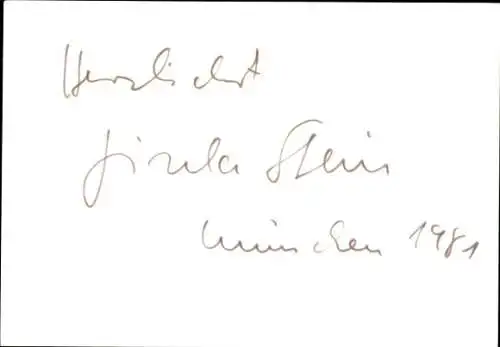 Herzlichst
Gisela Stein
München 1981